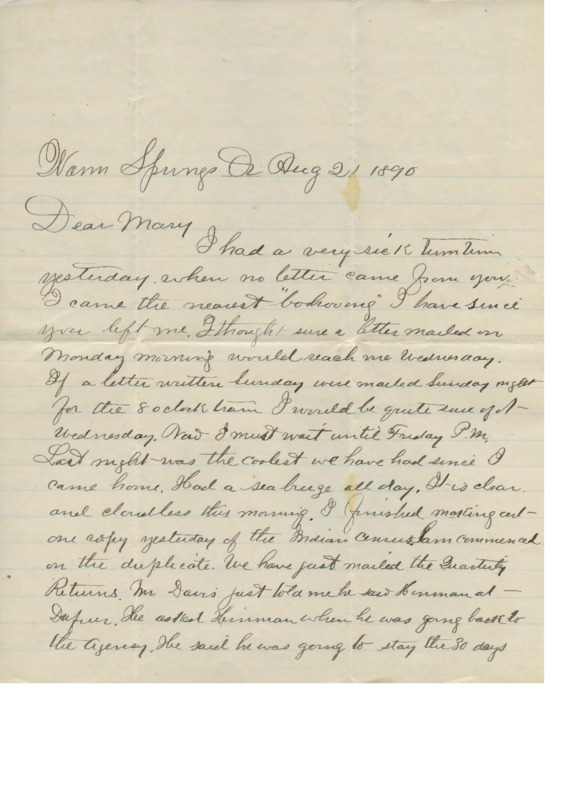 Warm Springs Or Aug 21 1890
Dear Mary
I had a very sick tumtum
yesterday, when no letter came from you.
I came the nearest "bohooing" I have since
you left me. I thought sure a letter mailed on
Monday morning would reach me Wednesday.
If a letter written Sunday were mailed Sunday night
for the 8 oclock train I would be quite sure of it
Wednesday. Now I must wait until Friday P.M.
Last night was the coolest we have had since I
came home. Had a sea breeze all day. It is clear
and cloudless this morning. I finished making out
one copy yesterday of the Indian census. Am commenced
on the duplicate. We have just mailed the Quarterly
Returns. Mr Davis just told me he saw Hinman at
Dufur. He asked Hinman when he was going back to
the Agency. He said he was going to stay the 30 days